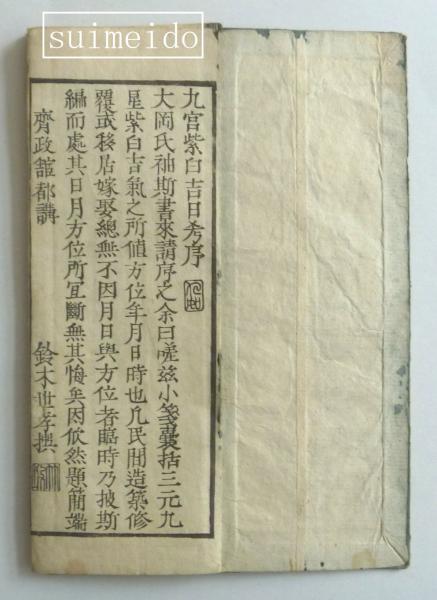 suimeido
九宮紫白吉日考序
大岡氏袖斯書來請序之余曰嗟茲小箋囊括三元九
星紫白吉氣之所値方位年月日時也凡民間造築修
覆或移居嫁娶總無不因月日與方位者臨時乃披斯
編而處其日月方位所宜斷無其悔矣因欣然題簡端
齊政館都講
鈴木世孝撰